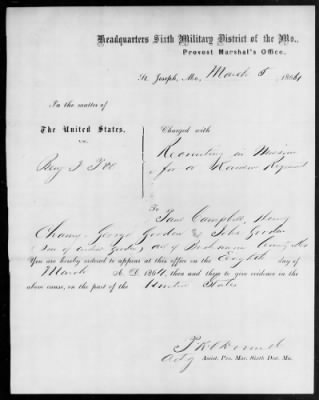 Headquarters Sixth Military District of the Mo.,
Provost Marshal's Office.
St. Joseph, Mo., March 5 1864
In the matter of
The United States,
vs.
Benj
Charged with
Recruiting in Missouri
for a Regiment
To Campbell, Henry
George and John
of Buchanan County Mo
You are hereby ordered to appear at this office on the Eighth day of
March A. D. 1864, then and there to give evidence in the
above cause, on the part of the United States
Actg Assist. Pro. Mar. Sixth Dist. Mo.